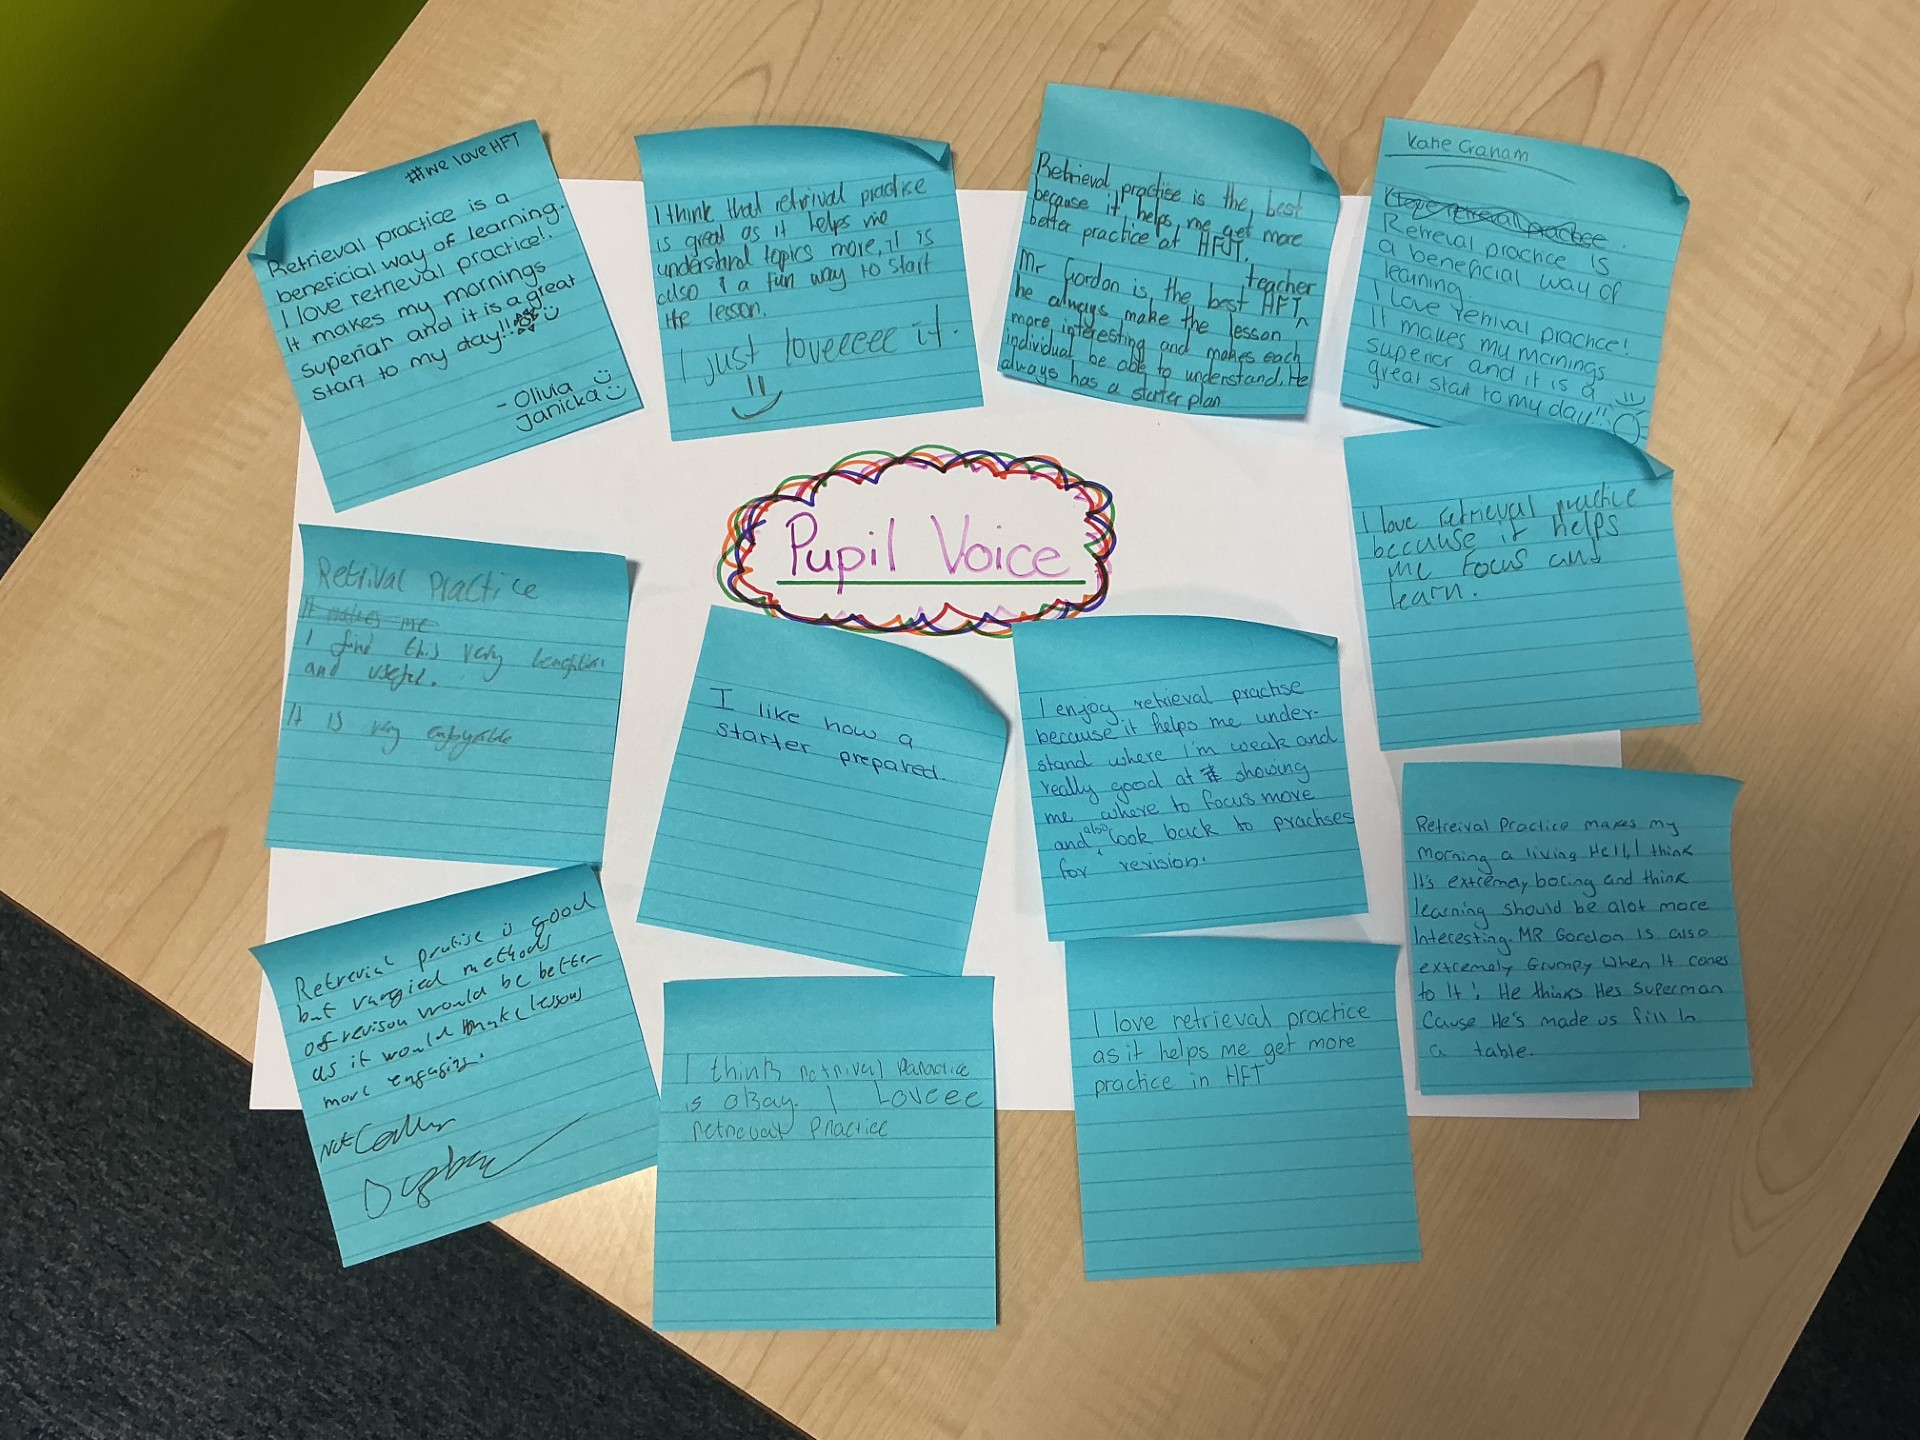 #we love HFT
Retrieval practice is a
beneficial way of learning.
I love retrieval practice!.
It makes my mornings
superiar and it is a great
start to my day!!
- Olivia
Janicka
I think that retrival practice
is great as it helps me
understand topics more, it is
also a fun way to start
the lesson.
I just loveeeee it.
Retrieval practise is the best
because it helps me get more
better practice at HFT.
Mr Gordon is the best HFT teacher
he always make the lesson
more interesting and makes each
individual be able to understand. He
always has a starter plan
Katie Graham
I love retrieval practice.
Retreval practice is
a beneficial way of
learning.
I love retrival practice!
It makes my mornings
superior and it is a
great start to my day!!
Pupil Voice
I love retrieval practice
because it helps
me focus and
learn.
Retrival Practice
It makes me
I find this very
and useful.
It is very enjoyable
I like how a
starter prepared.
I enjoy retrieval practise
because it helps me under-
stand where I'm weak and
really good at showing
me where to focus more
and also look back to practises
for revision.
Retreival Practice makes my
morning a living Hell, I think
It's extremely boring and think
learning should be alot more
Interesting. MR Gordon is also
extremely Grumpy when It comes
to It! He thinks Hes Superman
Cause He's made us fill In
a table.
Retrevial practise is good
but vargied methods
of revison would be better
as it would make lessons
more engaging.
Not
I think retrival Panactice
is okay. I Loveee
retreval practice
I love retrieval practice
as it helps me get more
practice in HFT